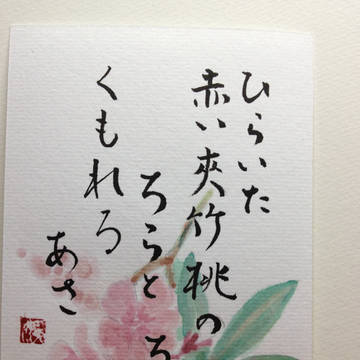 ひらいた
赤い夾竹桃の
ちらと
くもれる
あさ